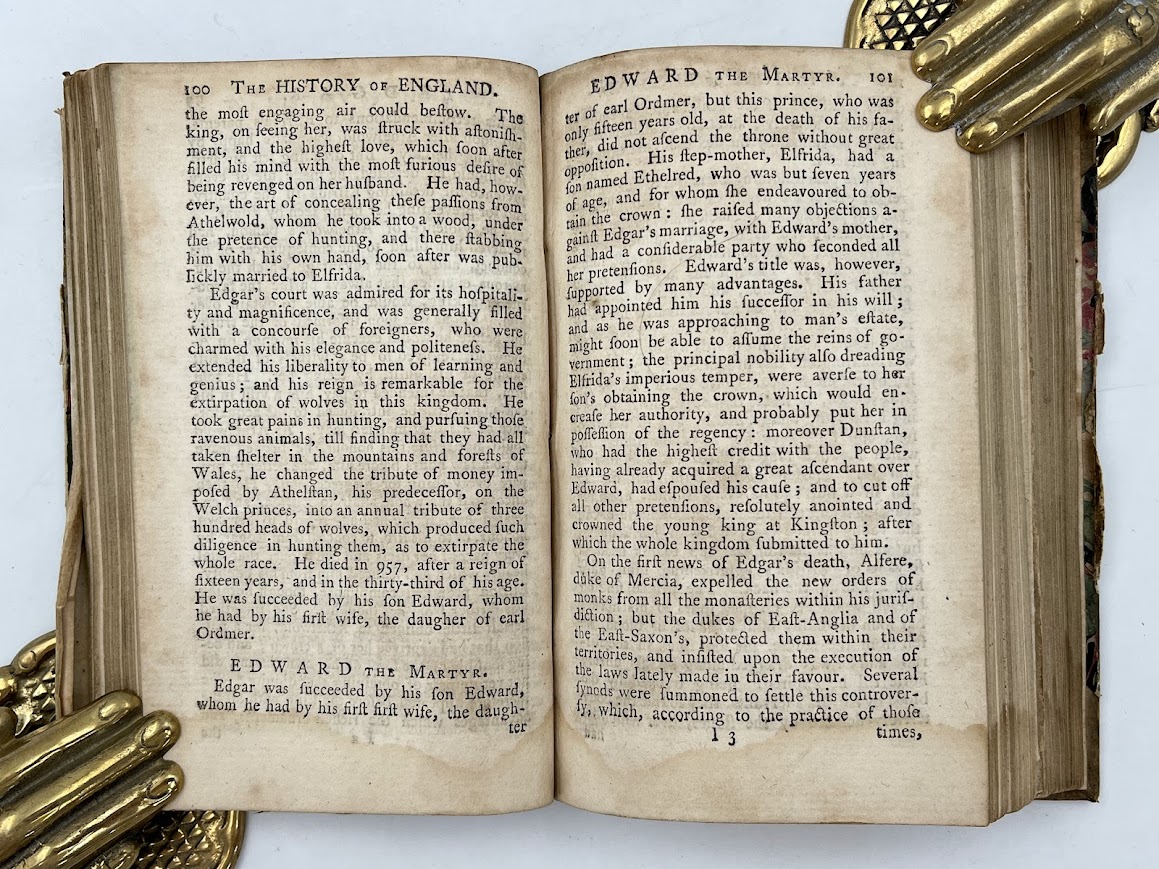 100 THE HISTORY OF ENGLAND.
the moſt engaging air could beſtow. The
king, on ſeeing her, was ſtruck with aſtoniſh-
ment, and the higheſt love, which ſoon after
filled his mind with the moſt furious deſire of
being revenged on her huſband. He had, how-
ever, the art of concealing theſe paſſions from
Athelwold, whom he took into a wood, under
the pretence of hunting, and there ſtabbing
him with his own hand, ſoon after was pub-
lickly married to Elfrida.
Edgar's court was admired for its hoſpitali-
ty and magnificence, and was generally filled
with a concourſe of foreigners, who were
charmed with his elegance and politeneſs. He
extended his liberality to men of learning and
genius; and his reign is remarkable for the
extirpation of wolves in this kingdom. He
took great pains in hunting, and purſuing thoſe
ravenous animals, till finding that they had all
taken ſhelter in the mountains and foreſts of
Wales, he changed the tribute of money im-
poſed by Athelſtan, his predeceſſor, on the
Welch princes, into an annual tribute of three
hundred heads of wolves, which produced ſuch
diligence in hunting them, as to extirpate the
whole race. He died in 957, after a reign of
ſixteen years, and in the thirty-third of his age.
He was ſucceeded by his ſon Edward, whom
he had by his firſt wife, the daugher of earl
Ordmer.
EDWARD THE MARTYR.
Edgar was ſucceeded by his ſon Edward,
whom he had by his firſt firſt wife, the daugh-
ter
EDWARD THE MARTYR. 101
ter of earl Ordmer, but this prince, who was
only fifteen years old, at the death of his fa-
ther, did not aſcend the throne without great
oppoſition. His ſtep-mother, Elfrida, had a
ſon named Ethelred, who was but ſeven years
of age, and for whom ſhe endeavoured to ob-
tain the crown: ſhe raiſed many objections a-
gainſt Edgar's marriage, with Edward's mother,
and had a conſiderable party who ſeconded all
her pretenſions. Edward's title was, however,
ſupported by many advantages. His father
had appointed him his ſucceſſor in his will;
and as he was approaching to man's eſtate,
might ſoon be able to aſſume the reins of go-
vernment; the principal nobility alſo dreading
Elfrida's imperious temper, were averſe to her
ſon's obtaining the crown, which would en-
creaſe her authority, and probably put her in
poſſeſſion of the regency: moreover Dunſtan,
who had the higheſt credit with the people,
having already acquired a great aſcendant over
Edward, had eſpouſed his cauſe; and to cut off
all other pretenſions, reſolutely anointed and
crowned the young king at Kingſton; after
which the whole kingdom ſubmitted to him.
On the firſt news of Edgar's death, Alfere,
duke of Mercia, expelled the new orders of
monks from all the monaſteries within his juriſ-
diction; but the dukes of Eaſt-Anglia and of
the Eaſt-Saxon's, protected them within their
territories, and inſiſted upon the execution of
the laws lately made in their favour. Several
ſynods were ſummoned to ſettle this controver-
ſy, which, according to the practice of thoſe
I 3 times,